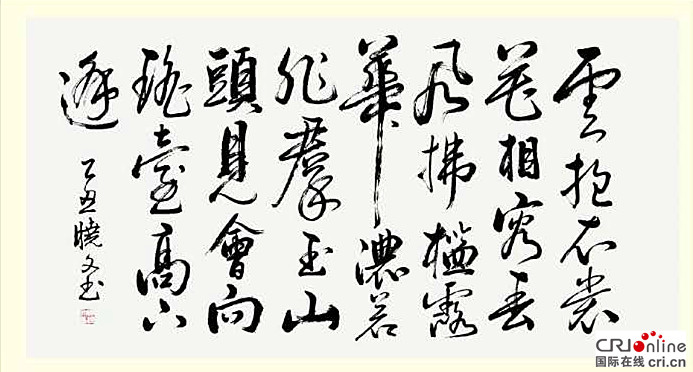 雲抱衣裳
花相容春
風拂檻露
華濃若
非羣玉山
頭見會向
瑤臺高下
逢
乙丑曉文書
CRIonline
国际在线 cri.cn